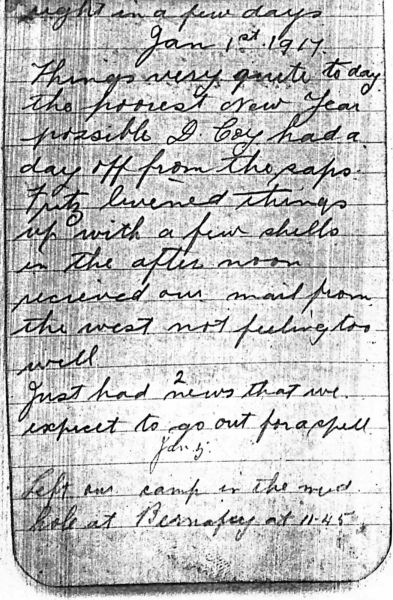 right in a few days
Jan 1st 1917.
Things very quite to day
the poorest New Year
possible D. Coy had a
day off from the saps.
Fritz livened things
up with a few shells
in the after noon
recieved our mail from
the west not feeling too
well
Just had 2 news that we
expect to go out for a spell
Jan 5
Left our camp in the mud
hole at Bernafay at 11.45